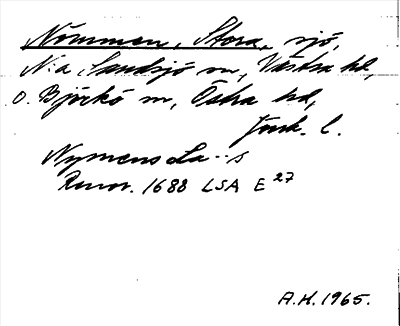 Nömmen, Stora, sjö,
N:a Sandsjö sn, Västra hd,
o. Björkö sn, Östra hd,
Jönk. l.
Nymens La--s
Renov. 1688 LSA E 27
A.H. 1965.